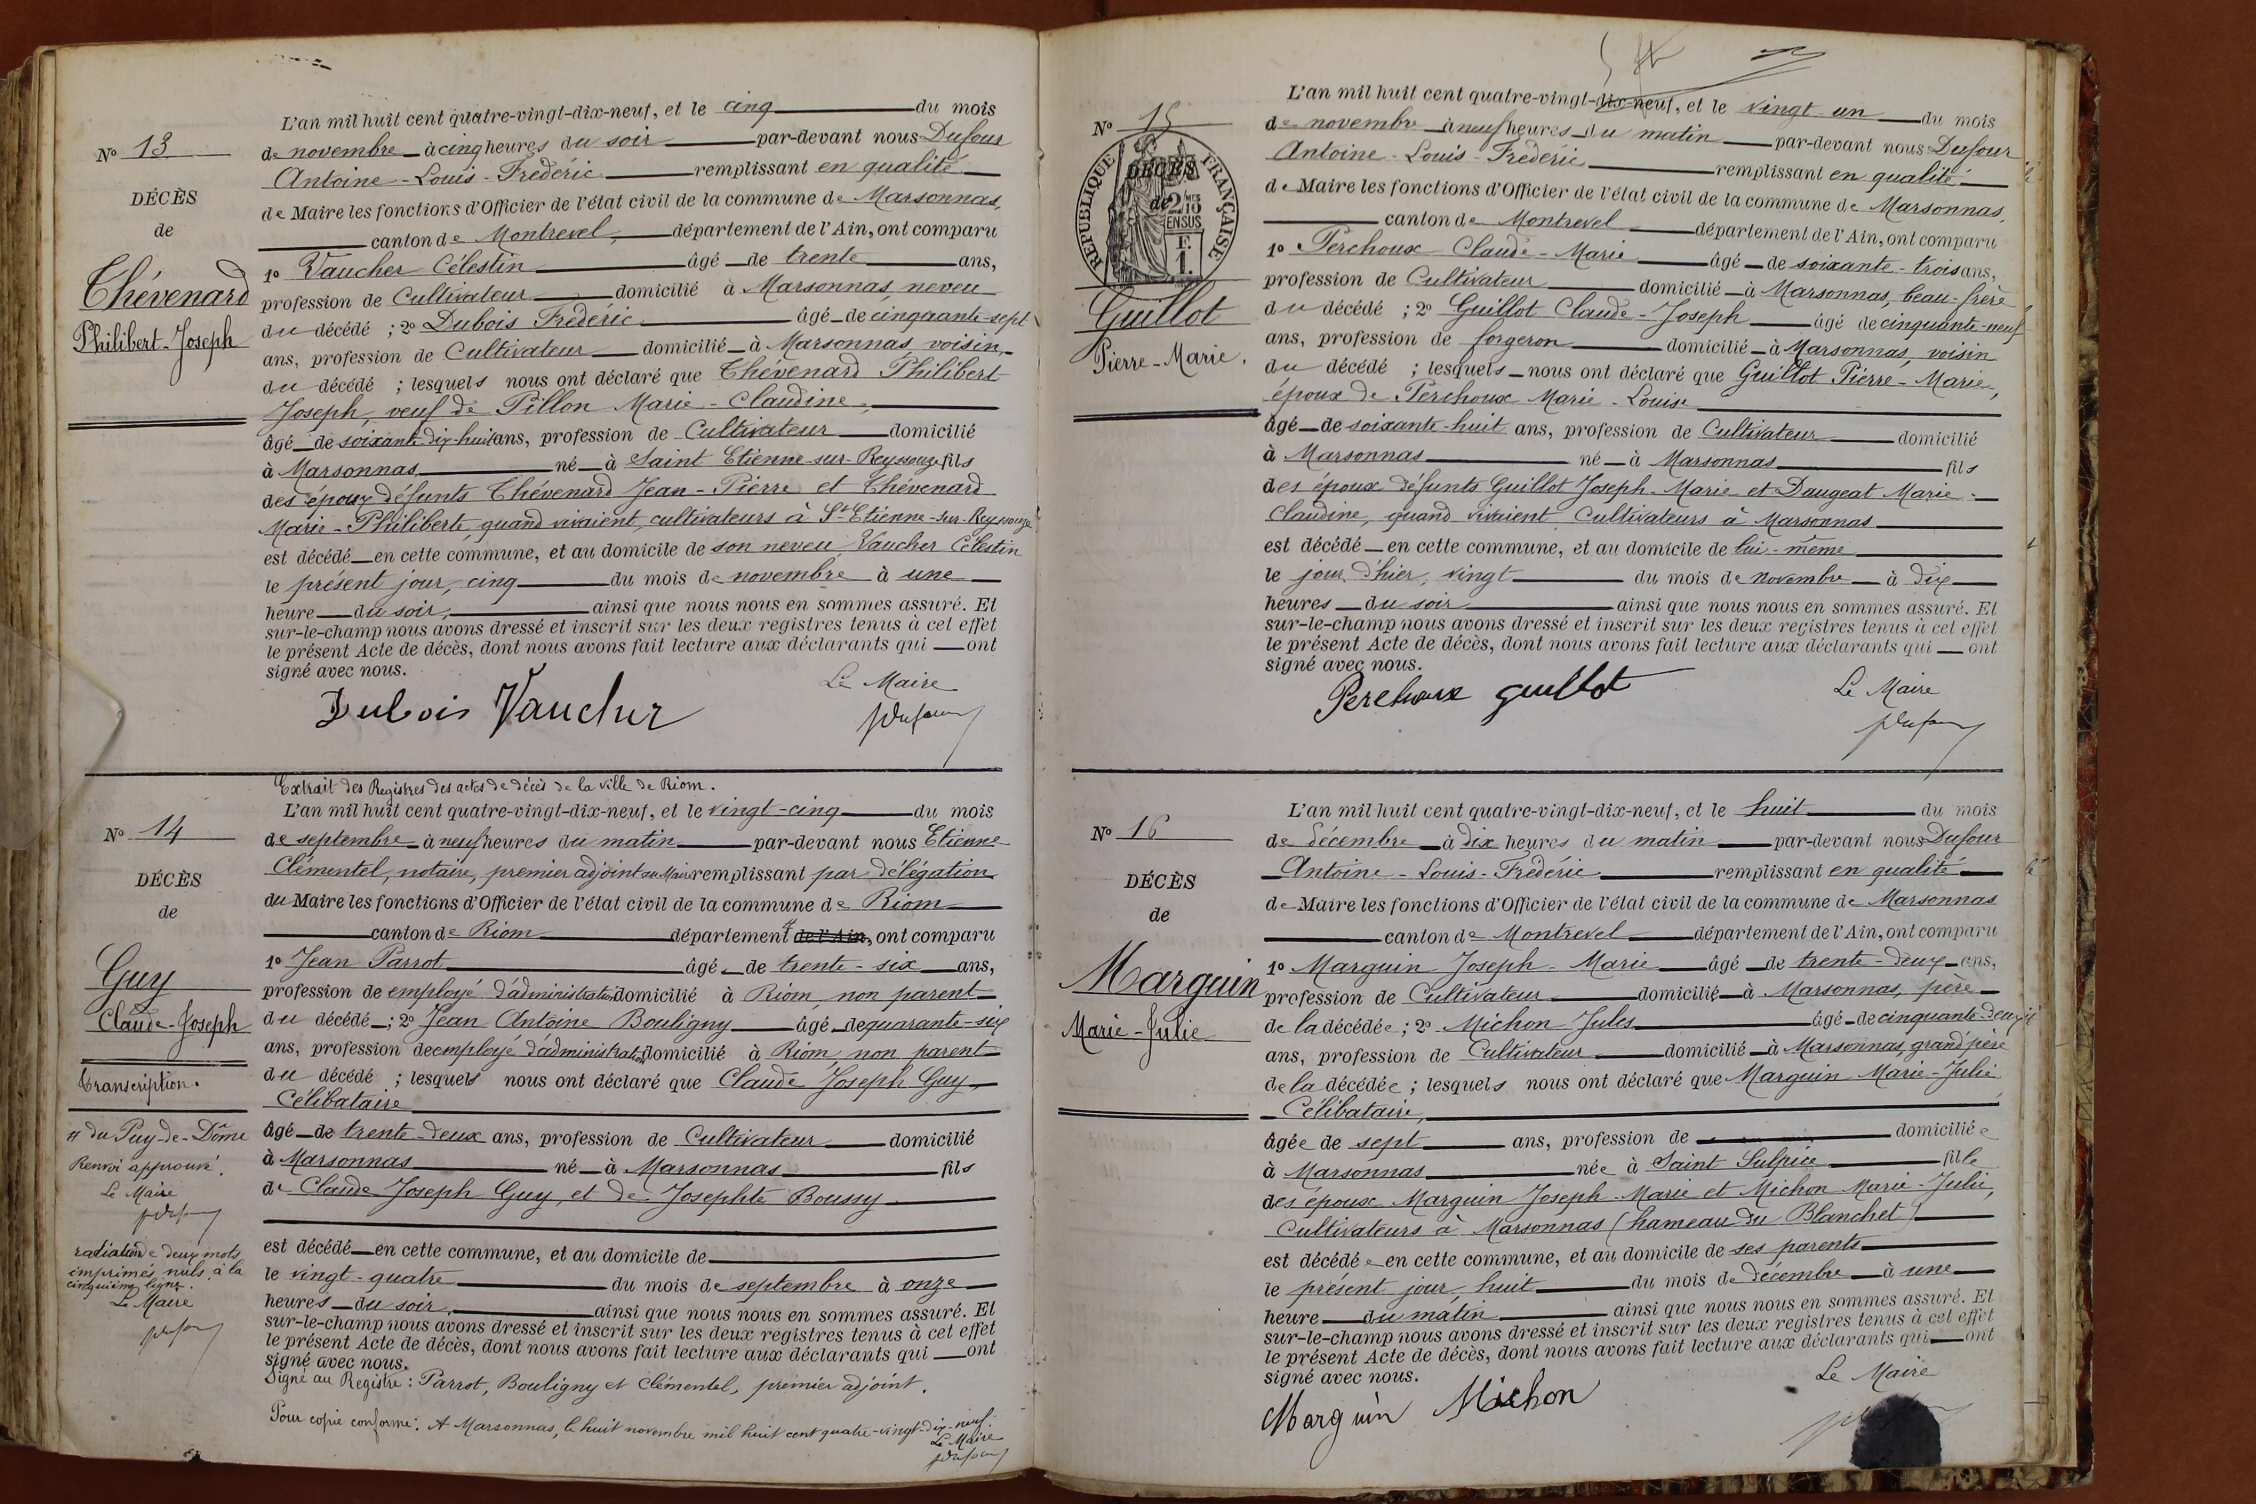 L'an mil huit cent quatre-vingt-dix-neuf, et le cinq du mois
No 13
de novembre à cinq heures du soir par-devant nous Dufour
Antoine-Louis-Frédéric remplissant en qualité
DÉCÈS
de Maire les fonctions d'Officier de l'état civil de la commune de Marsonnas,
de
canton de Montrevel, département de l'Ain, ont comparu
1o Vaucher Célestin âgé de trente ans,
Thévenard
profession de Cultivateur domicilié à Marsonnas, neveu
Philibert-Joseph
du décédé ; 2o Dubois Frédéric âgé de cinquante-sept
ans, profession de Cultivateur domicilié à Marsonnas, voisin
du décédé ; lesquels nous ont déclaré que Thévenard Philibert
Joseph, veuf de Pillon Marie-Claudine,
âgé de soixante dix-huit ans, profession de Cultivateur domicilié
à Marsonnas né à Saint Etienne-sur-Reyssouze fils
des époux défunts Thévenard Jean-Pierre et Thévenard
Marie-Philiberte, quand vivaient, cultivateurs à St Etienne-sur-Reyssouze
est décédé en cette commune, et au domicile de son neveu Vaucher Célestin
le présent jour, cinq du mois de novembre à une
heure du soir, ainsi que nous nous en sommes assuré. Et
sur-le-champ nous avons dressé et inscrit sur les deux registres tenus à cet effet
le présent Acte de décès, dont nous avons fait lecture aux déclarants qui ont
signé avec nous.
Le Maire
Dubois Vaucher
fDufour
Extrait des Registres des actes de décès de la ville de Riom.
L'an mil huit cent quatre-vingt-dix-neuf, et le vingt-cinq du mois
No 14
de septembre à neuf heures du matin par-devant nous Etienne
Clémentel, notaire, premier adjoint au Maire remplissant par délégation
DÉCÈS
du Maire les fonctions d'Officier de l'état civil de la commune de Riom
de
canton de Riom département # de l'Ain, ont comparu
1o Jean Parrot âgé de trente-six ans,
Guy
profession de employé d'administration domicilié à Riom, non parent
Claude-Joseph
du décédé ; 2o Jean Antoine Bouligny âgé de quarante-six
ans, profession de employé d'administration domicilié à Riom, non parent
Transcription.
du décédé ; lesquels nous ont déclaré que Claude Joseph Guy,
Célibataire
# du Puy-de-Dôme
âgé de trente-deux ans, profession de Cultivateur domicilié
Renvoi approuvé.
à Marsonnas né à Marsonnas fils
Le Maire
de Claude Joseph Guy, et de Josephte Boussy
fDufour
radiation de deux mots
imprimés nuls à la
cinquième ligne.
Le Maire
fDufour
est décédé en cette commune, et au domicile de
le vingt-quatre du mois de septembre à onze
heures du soir, ainsi que nous nous en sommes assuré. Et
sur-le-champ nous avons dressé et inscrit sur les deux registres tenus à cet effet
le présent Acte de décès, dont nous avons fait lecture aux déclarants qui ont
signé avec nous.
Signé au Registre : Parrot, Bouligny et Clémentel, premier adjoint.
Pour copie conforme : A Marsonnas, le huit novembre mil huit cent quatre-vingt-dix-neuf.
Le Maire
fDufour
L'an mil huit cent quatre-vingt-dix-neuf, et le vingt un du mois
No 15
de novembre à neuf heures du matin par-devant nous Dufour
Antoine-Louis-Frédéric remplissant en qualité
RÉPUBLIQUE FRANÇAISE
DÉCÈS
de
2 MES
10
EN SUS
F.
1.
de Maire les fonctions d'Officier de l'état civil de la commune de Marsonnas,
canton de Montrevel département de l'Ain, ont comparu
1o Perchoux Claude-Marie âgé de soixante-trois ans,
profession de Cultivateur domicilié à Marsonnas, beau-frère
Guillot
du décédé ; 2o Guillot Claude-Joseph âgé de cinquante-neuf
Pierre-Marie.
ans, profession de forgeron domicilié à Marsonnas, voisin
du décédé ; lesquels nous ont déclaré que Guillot Pierre-Marie,
époux de Perchoux Marie-Louise
âgé de soixante-huit ans, profession de Cultivateur domicilié
à Marsonnas né à Marsonnas fils
des époux défunts Guillot Joseph-Marie et Daugeat Marie-
Claudine, quand vivaient Cultivateurs à Marsonnas
est décédé en cette commune, et au domicile de lui-même
le jour d'hier, vingt du mois de novembre à dix
heures du soir ainsi que nous nous en sommes assuré. Et
sur-le-champ nous avons dressé et inscrit sur les deux registres tenus à cet effet
le présent Acte de décès, dont nous avons fait lecture aux déclarants qui ont
signé avec nous.
Perchoux Guillot
Le Maire
fDufour
L'an mil huit cent quatre-vingt-dix-neuf, et le huit du mois
No 16
de décembre à dix heures du matin par-devant nous Dufour
Antoine-Louis-Frédéric remplissant en qualité
DÉCÈS
de Maire les fonctions d'Officier de l'état civil de la commune de Marsonnas
de
canton de Montrevel département de l'Ain, ont comparu
Marguin
1o Marguin Joseph-Marie âgé de trente-deux ans,
profession de Cultivateur domicilié à Marsonnas, père
Marie-Julie
de la décédée ; 2o Michon Jules âgé de cinquante-deux
ans, profession de Cultivateur domicilié à Marsonnas, grand'père
de la décédée ; lesquels nous ont déclaré que Marguin Marie-Julie
Célibataire,
âgée de sept ans, profession de domiciliée
à Marsonnas née à Saint Sulpice fille
des époux Marguin Joseph-Marie et Michon Marie-Julie,
Cultivateurs à Marsonnas (hameau du Blanchet)
est décédée en cette commune, et au domicile de ses parents
le présent jour, huit du mois de décembre à une
heure du matin ainsi que nous nous en sommes assuré. Et
sur-le-champ nous avons dressé et inscrit sur les deux registres tenus à cet effet
le présent Acte de décès, dont nous avons fait lecture aux déclarants qui ont
signé avec nous.
Le Maire
Marguin Michon